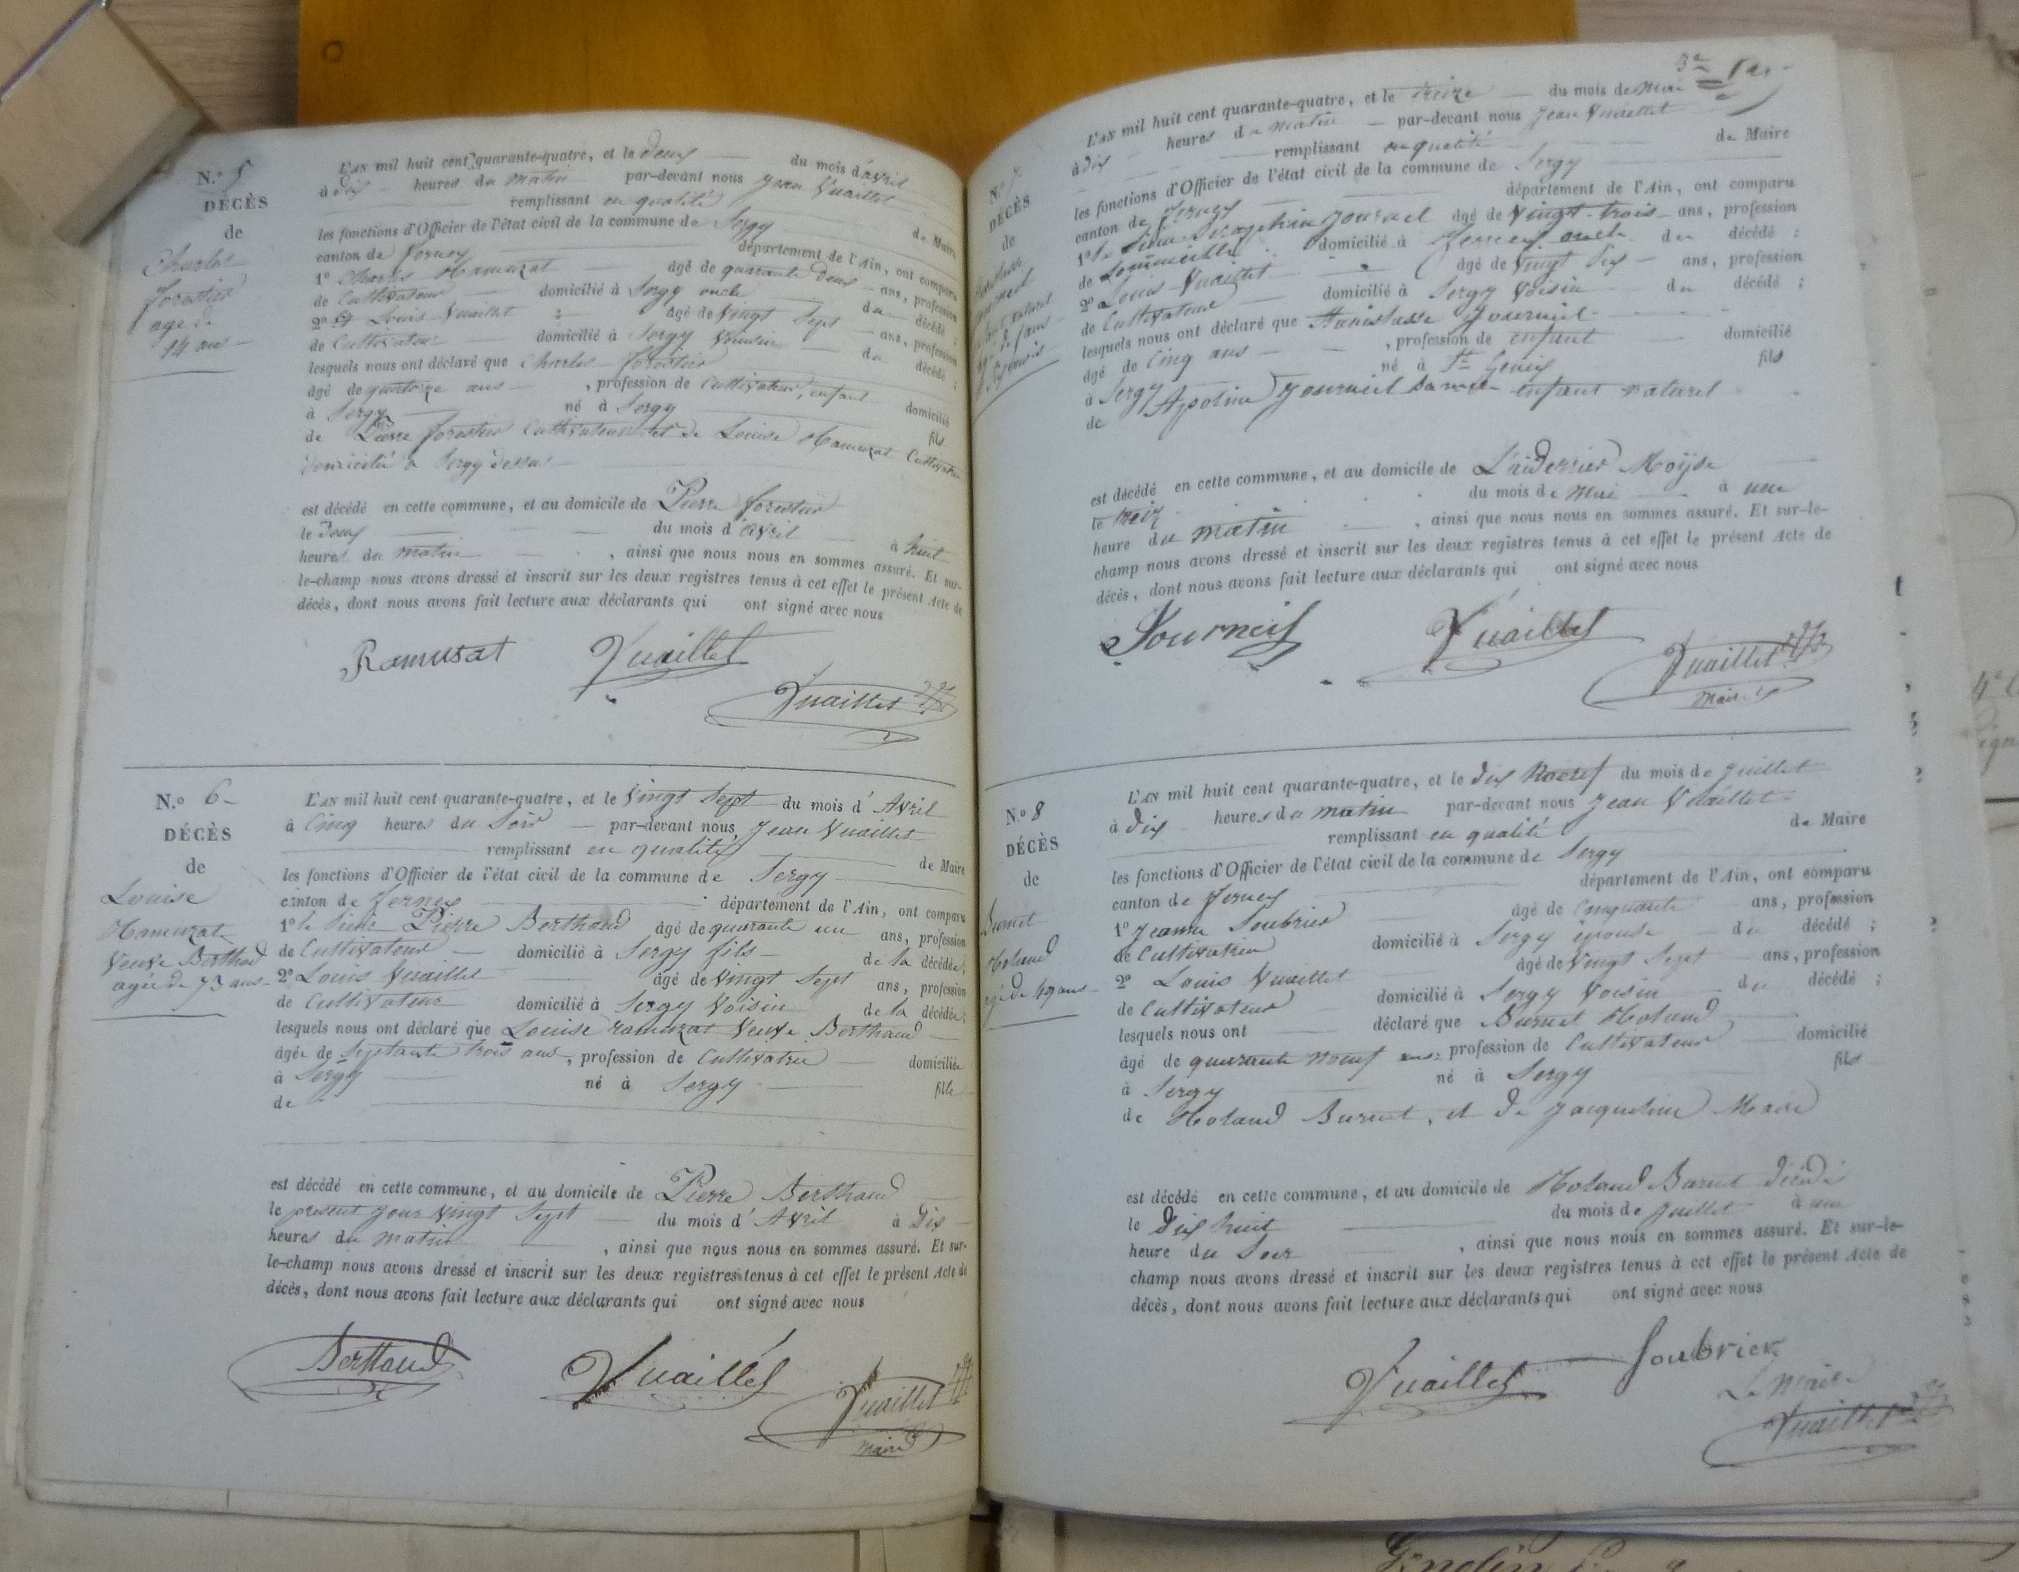 N.º 5
DÉCÈS
de
Charles
forestier
age de
14 ans
L'AN mil huit cent quarante-quatre, et le deux du mois d'avril
à dix heures du matin par-devant nous Jean Vuaillet
remplissant en qualité de Maire
les fonctions d'Officier de l'état civil de la commune de Sergy
canton de ferney département de l'Ain, ont comparu
1º Charles Ramuzat âgé de quarante deux ans, profession
de Cultivateur domicilié à Sergy oncle du décédé ;
2º Louis Vuaillet âgé de vingt sept ans, profession
de Cultivateur domicilié à Sergy voisin du décédé ;
lesquels nous ont déclaré que Charles forestier
âgé de quatorze ans , profession de Cultivateur, enfant domicilié
à Sergy né à Sergy fils
de Pierre forestier Cultivateur et de Louise Ramuzat Cultivatrice
domicilié à Sergy dessus
est décédé en cette commune, et au domicile de Pierre forestier
le deux du mois d'avril à huit
heures du matin , ainsi que nous nous en sommes assuré. Et sur-
le-champ nous avons dressé et inscrit sur les deux registres tenus à cet effet le présent Acte de
décès, dont nous avons fait lecture aux déclarants qui ont signé avec nous
Ramusat Vuaillet
Vuaillet
N.º 6
DÉCÈS
de
Louise
Ramuzat
Veuve Berthod
agée de 73 ans
L'AN mil huit cent quarante-quatre, et le vingt sept du mois d'Avril
à Cinq heures du Soir par-devant nous, Jean Vuaillet
remplissant en qualité de Maire
les fonctions d'Officier de l'état civil de la commune de Sergy
canton de ferney département de l'Ain, ont comparu
1º Pierre Berthaud âgé de quarante un ans, profession
de Cultivateur domicilié à Sergy fils de la décédée;
2º Louis Vuaillet âgé de vingt sept ans, profession
de Cultivateur domicilié à Sergy Voisin de la décédée;
lesquels nous ont déclaré que Louise ramuzat Veuve Berthaud
âgée de septante trois ans, profession de Cultivatrice domiciliée
à Sergy né à Sergy fille
de
est décédé en cette commune, et au domicile de Pierre Berthaud
le présent jour vingt sept du mois d'Avril à Dix
heures du matin , ainsi que nous nous en sommes assuré. Et sur-
le-champ nous avons dressé et inscrit sur les deux registres tenus à cet effet le présent Acte de
décès, dont nous avons fait lecture aux déclarants qui ont signé avec nous
Berthaud Vuaillet
Vuaillet
maire
N.º 7
DÉCÈS
de
L'AN mil huit cent quarante-quatre, et le treize du mois de Mai
à dix heures du matin par-devant nous Jean Vuaillet
remplissant en qualité de Maire
les fonctions d'Officier de l'état civil de la commune de Sergy
canton de ferney département de l'Ain, ont comparu
1º Seraphin Journel âgé de vingt-trois ans, profession
de domicilié à ferney oncle du décédé ;
2º Louis Vuaillet âgé de vingt ans, profession
de Cultivateur domicilié à Sergy Voisin du décédé ;
lesquels nous ont déclaré que Stanislasse Journeil
âgé de Cinq ans , profession de enfant domicilié
à Sergy né à St Genis fils
de Apoline Journeil enfant naturel
est décédé en cette commune, et au domicile de Moÿse
le du mois de Mai à une
heure du matin , ainsi que nous nous en sommes assuré. Et sur-le-
champ nous avons dressé et inscrit sur les deux registres tenus à cet effet le présent Acte de
décès, dont nous avons fait lecture aux déclarants qui ont signé avec nous
Journeil Vuaillet
Vuaillet
Maire
N.º 8
DÉCÈS
de
Burnet
Roland
agé de 49 ans
L'AN mil huit cent quarante-quatre, et le dix Noeuf du mois de Juillet
à dix heures du matin par-devant nous Jean Vuaillet
remplissant en qualité de Maire
les fonctions d'Officier de l'état civil de la commune de Sergy
canton de ferney département de l'Ain, ont comparu
1º Jeanne Soubrier âgé de Cinquante ans, profession
de Cultivatrice domicilié à Sergy épouse du décédé ;
2º Louis Vuaillet âgé de vingt sept ans, profession
de Cultivateur domicilié à Sergy Voisin du décédé ;
lesquels nous ont déclaré que Burnet Roland
âgé de quarante noeuf ans profession de Cultivateur domicilié
à Sergy né à Sergy fils
de Roland Burnet, et de Jacqueline
est décédé en cette commune, et au domicile de Roland Burnet décédé
le Dix huit du mois de Juillet à une
heure du Soir , ainsi que nous nous en sommes assuré. Et sur-le-
champ nous avons dressé et inscrit sur les deux registres tenus à cet effet le présent Acte de
décès, dont nous avons fait lecture aux déclarants qui ont signé avec nous
Vuaillet Soubrier
Le Maire
Vuaillet